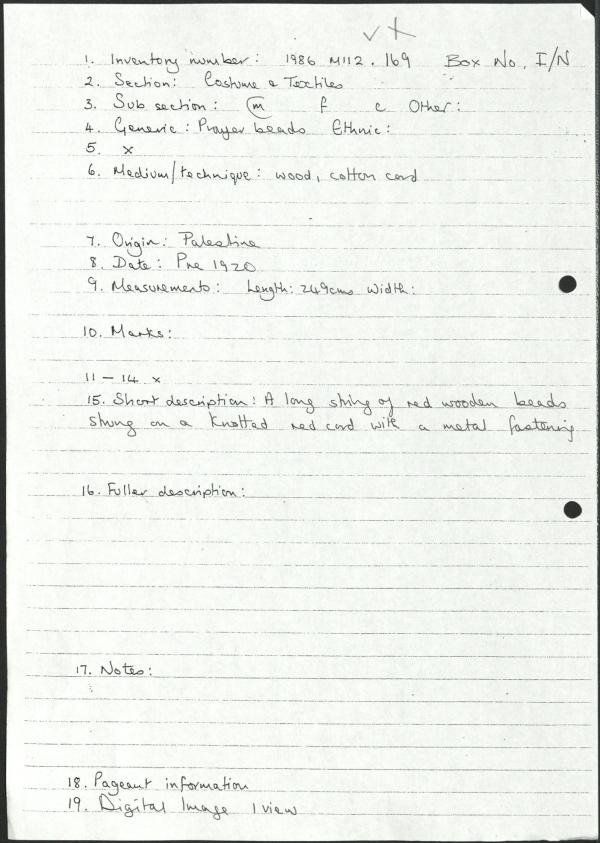 1. Inventory number: 1986 M112.169 Box No. I/N
2. Section: Costume & Textiles
3. Sub section: m f c Other:
4. Generic: Prayer beads Ethnic:
5. x
6. Medium/technique: wood, cotton cord
7. Origin: Palestine
8. Date: Pre 1920
9. Measurements: Length: 249cms Width:
10. Marks:
11 - 14 x
15. Short description: A long string of red wooden beads
strung on a knotted red cord with a metal fastening
16. Fuller description:
17. Notes:
18. Pageant information
19. Digital Image 1 view